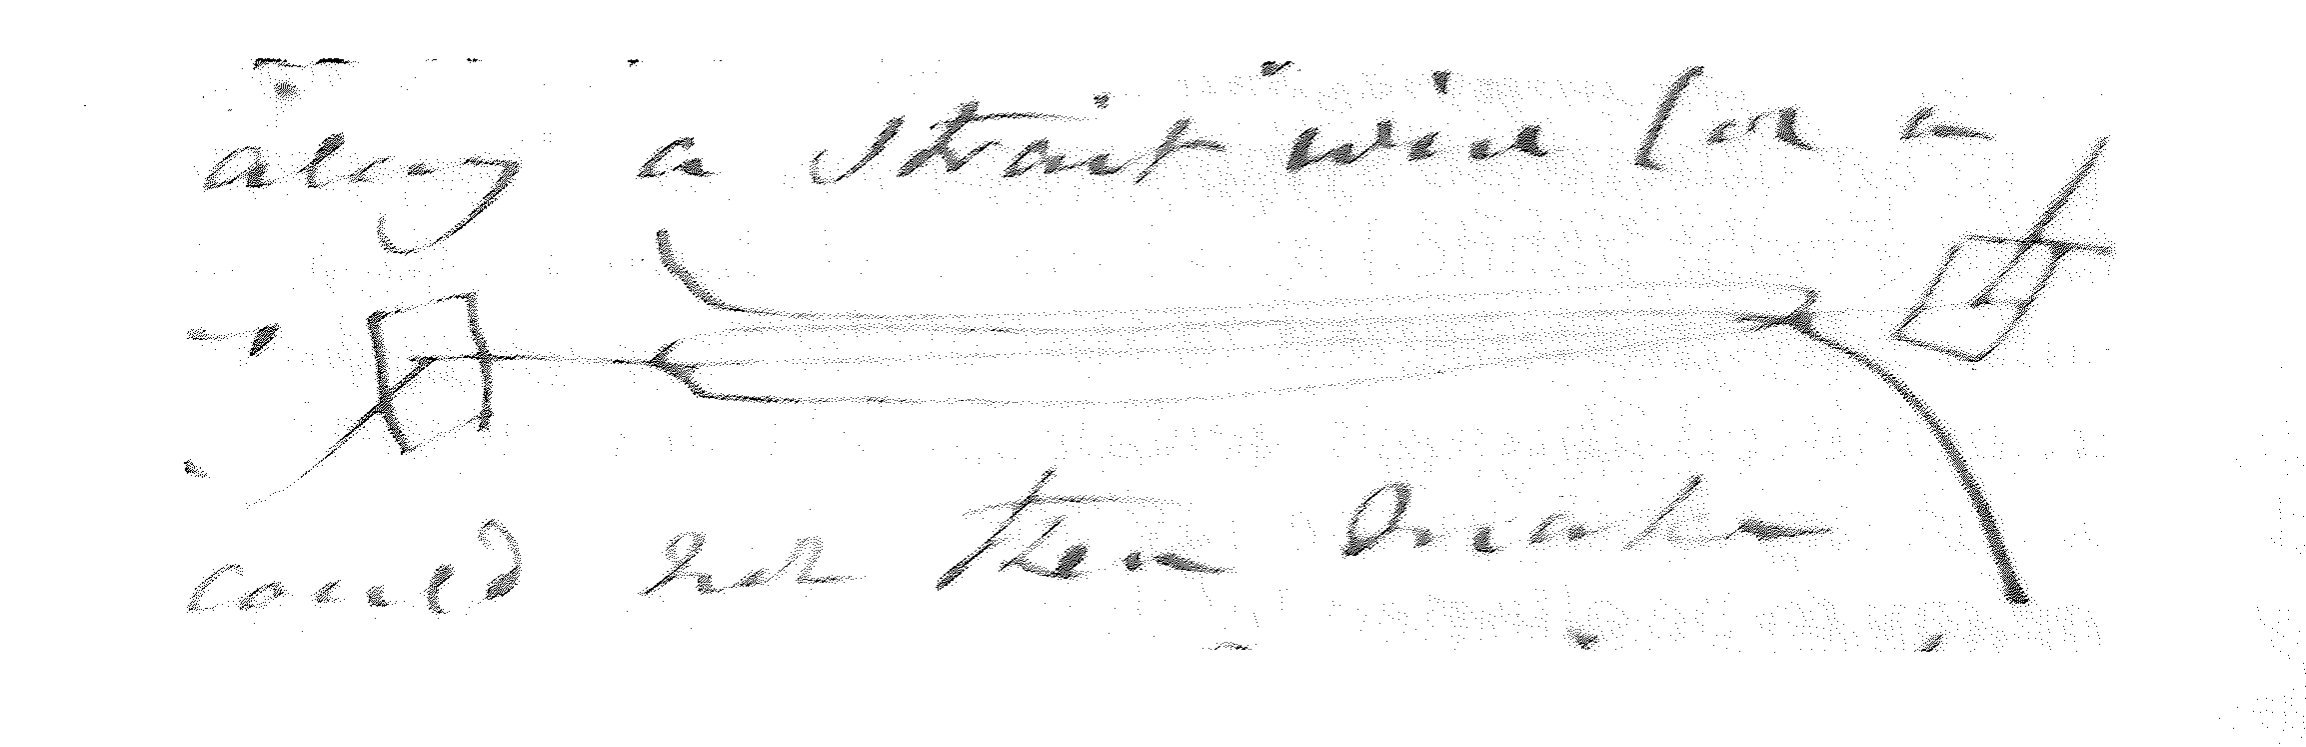 along a strait wire (or a
could not then make